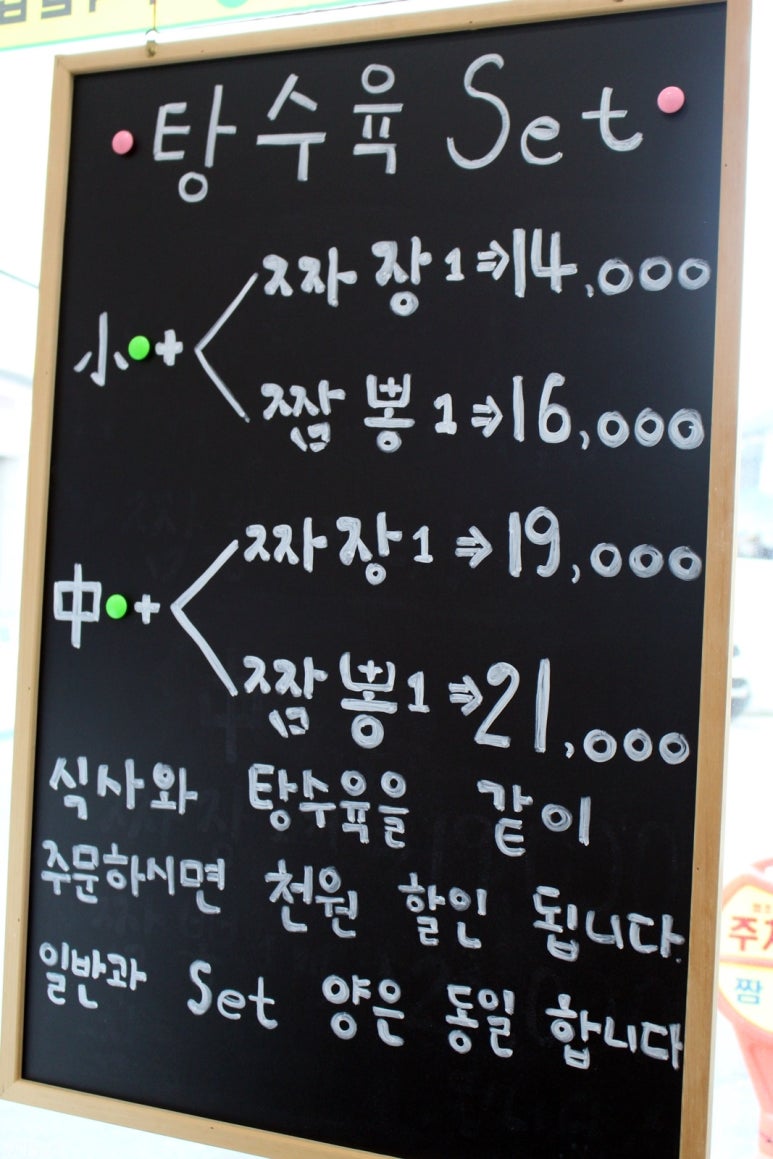 탕수육 Set
짜장1⇒14,000
小+
짬뽕1⇒16,000
짜장1⇒19,000
中+
짬뽕1⇒21,000
식사와 탕수육을 같이
주문하시면 천원 할인 됩니다.
일반과 Set 양은 동일 합니다
짬